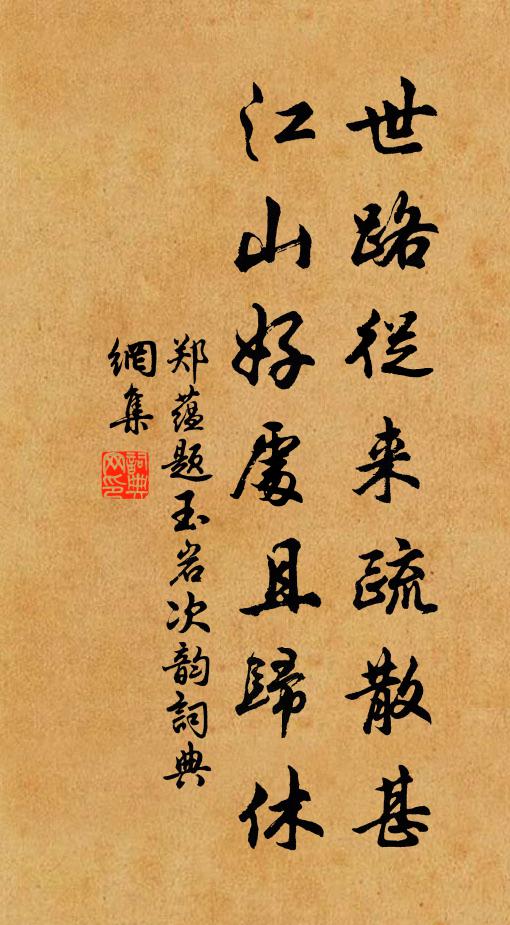 世路従来疏散甚
江山好處且歸休
郑蕴题玉岩次韵詞典
網集
詞典
网印